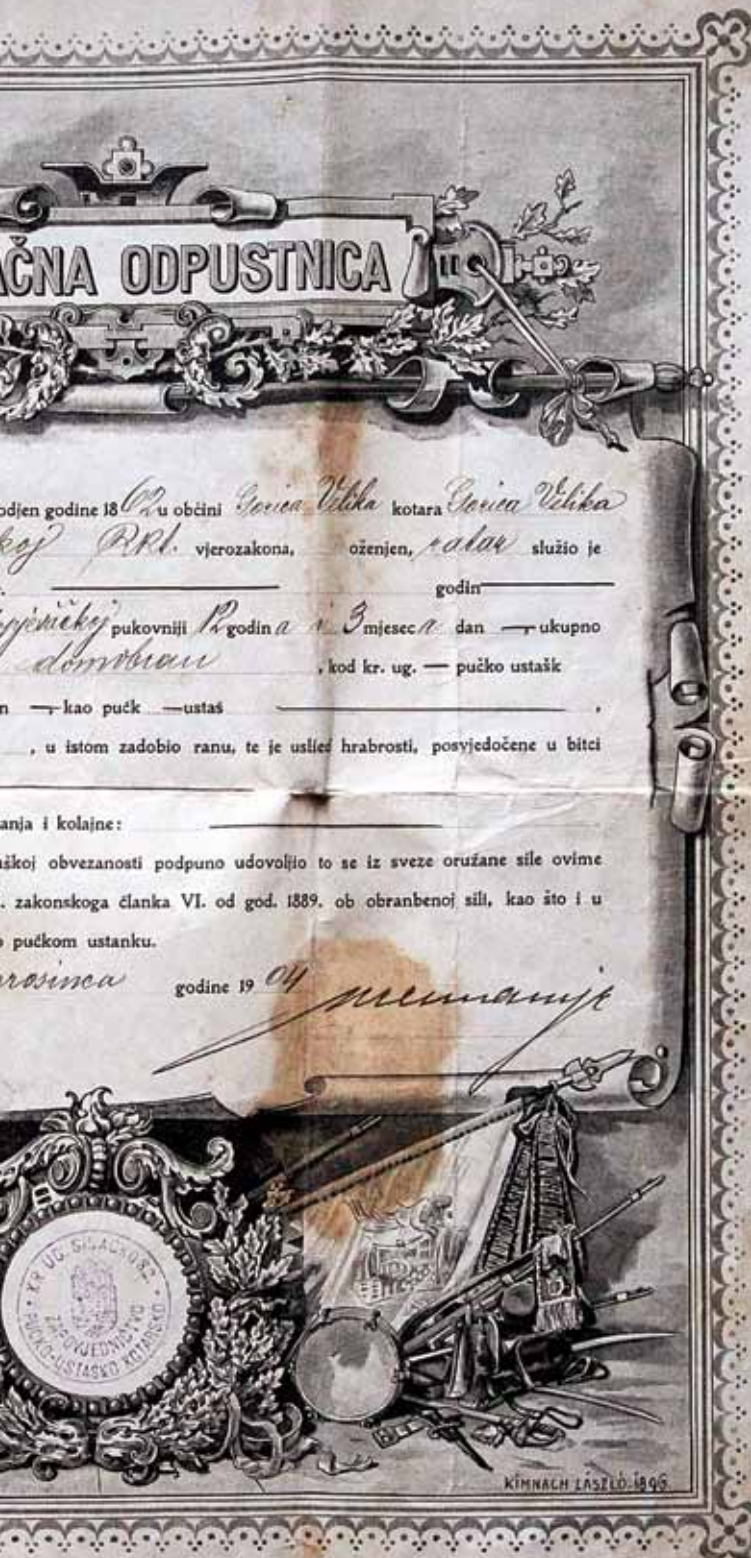 AČNA ODPUSTNICA
odjen godine 1862 u občini Gorica Velika kotara Gorica Velika
koj Rkt. vjerozakona, oženjen, ratar služio je
godin
pukovniji 12 godina i 3 mjeseca dan —, ukupno
domobran , kod kr. ug. — pučko ustašk
n —, kao pučk — ustaš ,
, u istom zadobio ranu, te je uslied hrabrosti, posvjedočene u bitci
anja i kolajne:
uškoj obvezanosti podpuno udovoljio to se iz sveze oružane sile ovime
. zakonskoga članka VI. od god. 1889. ob obranbenoj sili, kao što i u
o pučkom ustanku.
rosinca godine 1904
KR UG SISAČKO 8Z
PUČKO-USTAŠKO KOTARSKO
ZAPOVJEDNIČTVO
KIMNACH LÁSZLÓ. 1896.